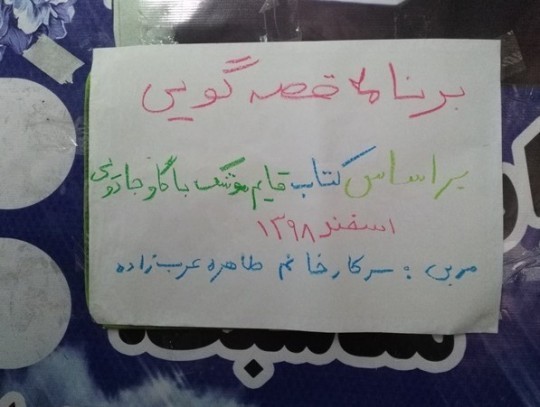 برنامه قصه گویی
بر اساس کتاب قایم موشک با گاو جادویی
اسفند ۱۳۹۸
مربی : سرکار خانم طاهره عرب زاده